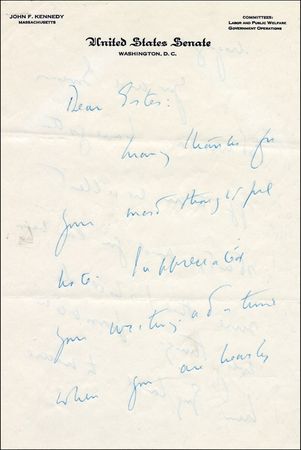 JOHN F. KENNEDY
MASSACHUSETTS
COMMITTEES:
LABOR AND PUBLIC WELFARE
GOVERNMENT OPERATIONS
United States Senate
WASHINGTON, D. C.
Dear Estes:
Many thanks for
your most thoughtful
note. I appreciated
your writing at a time
when you are heavily